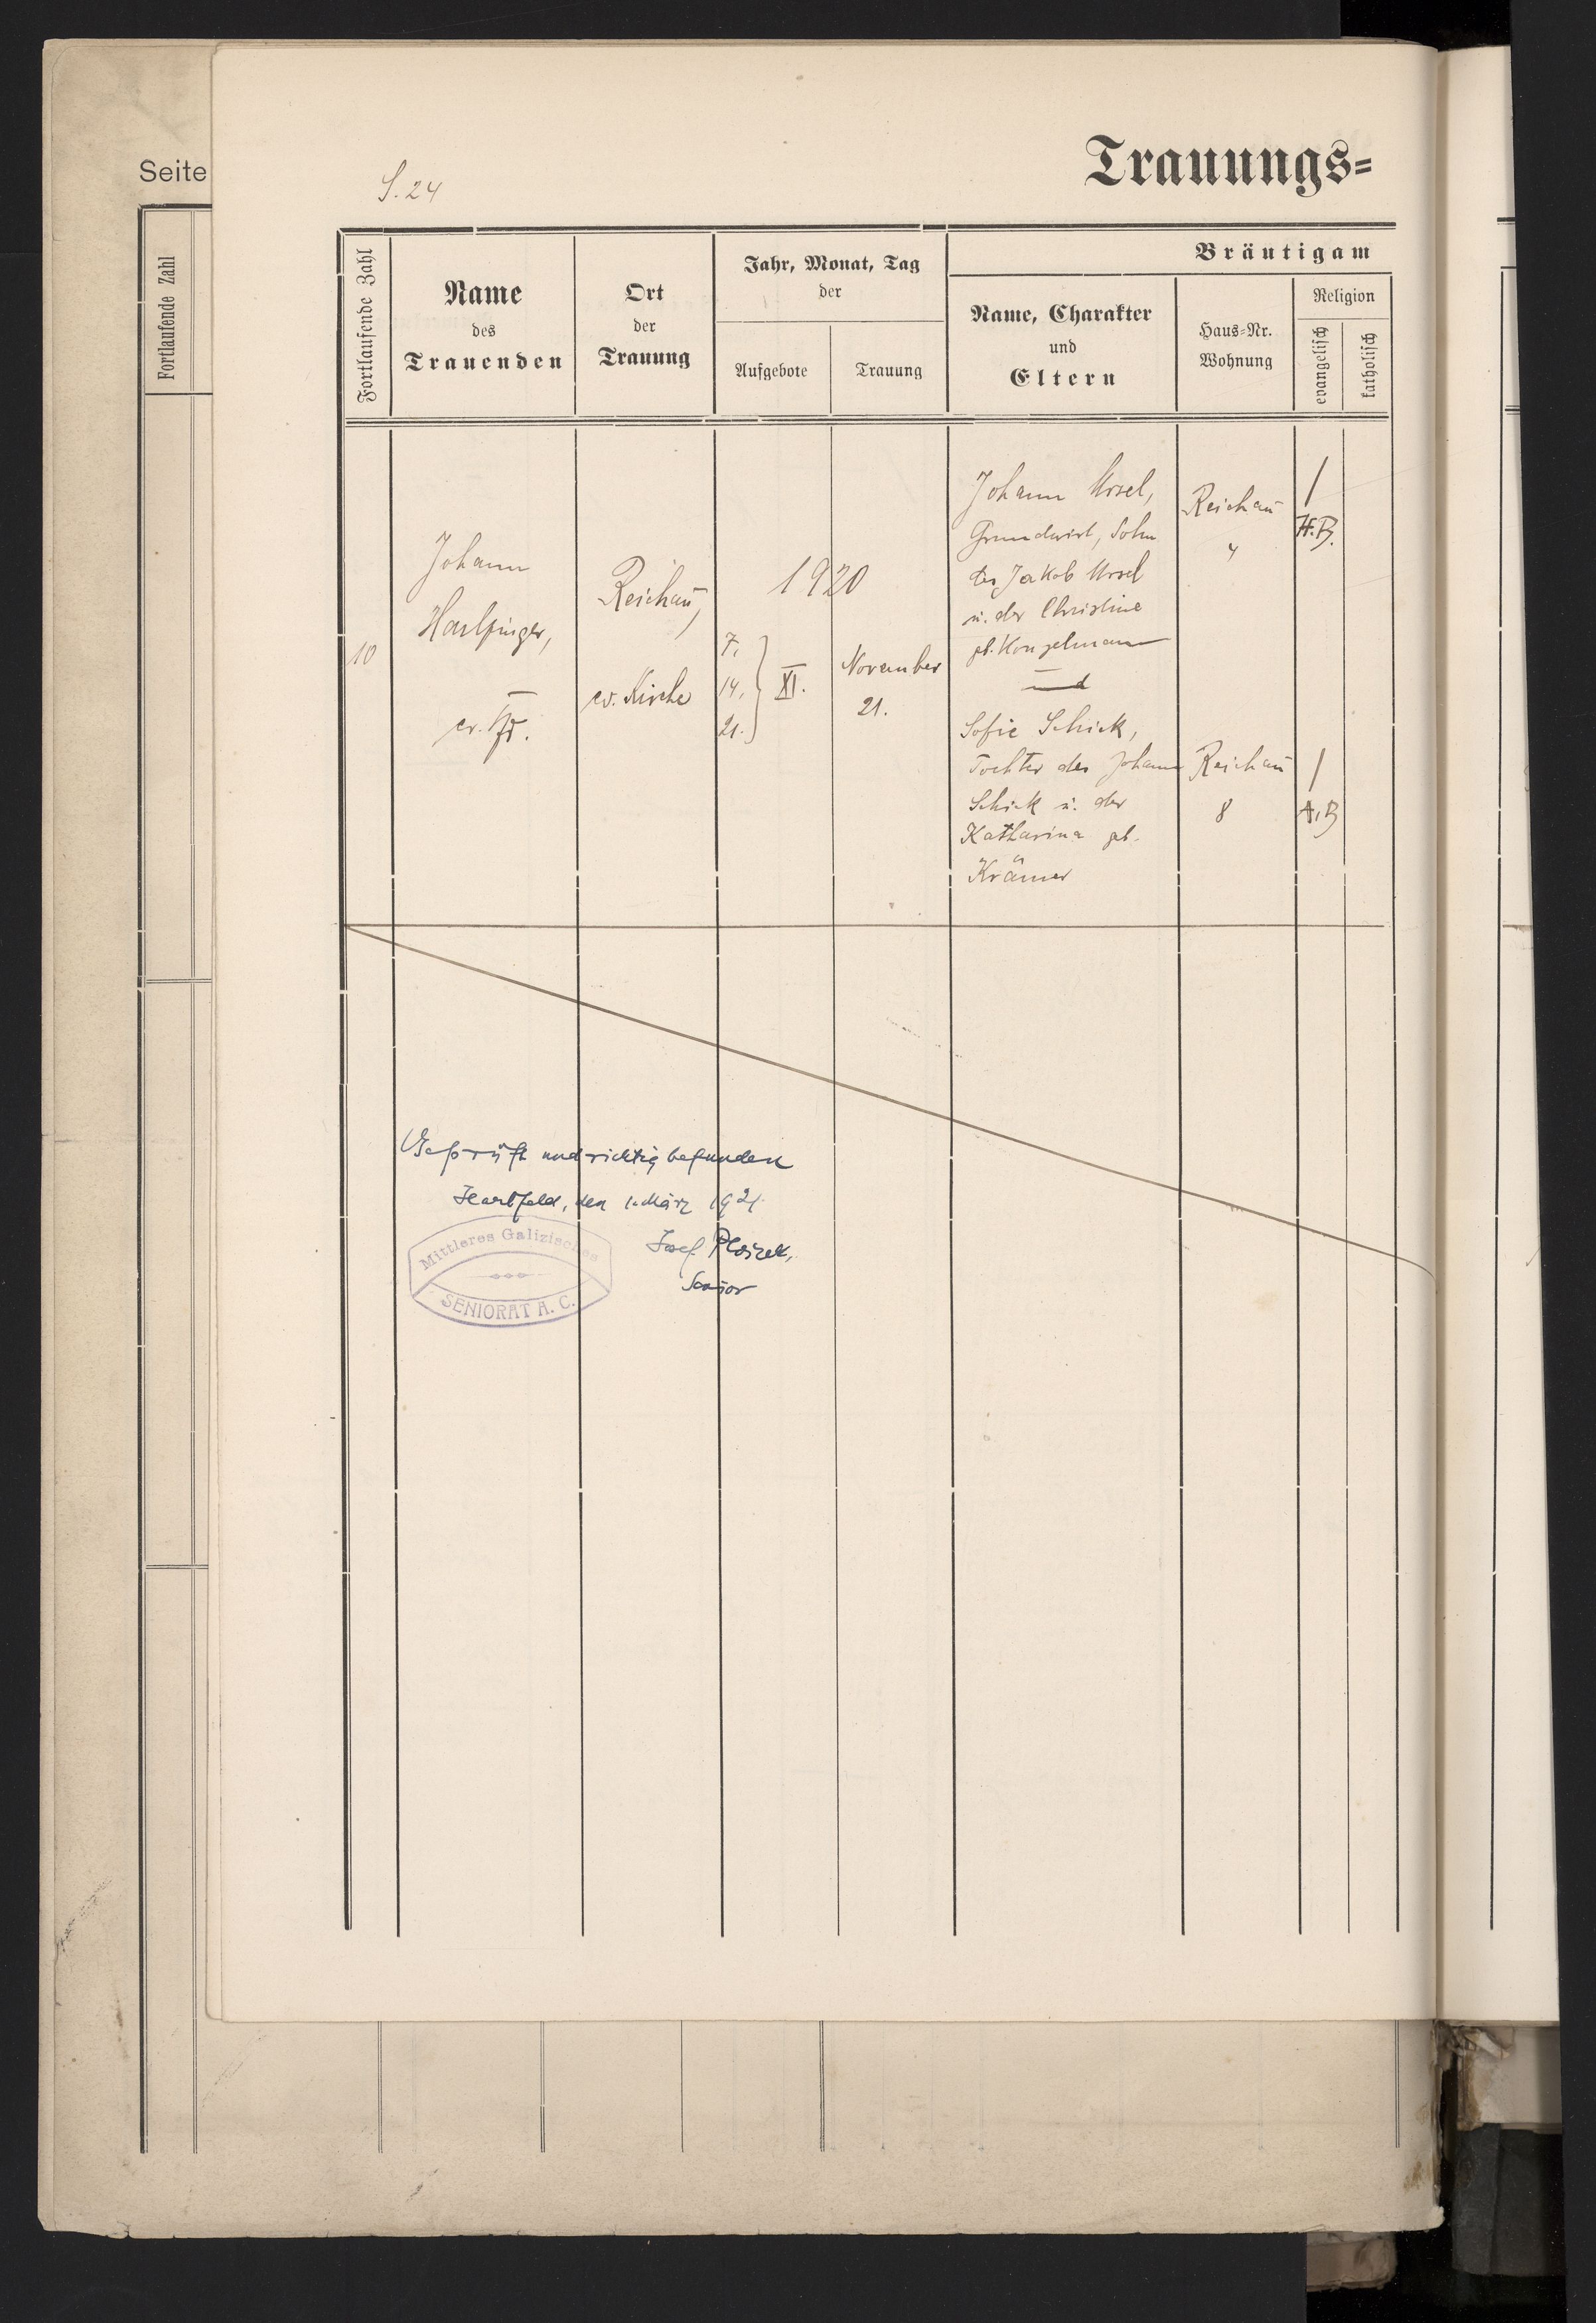 Seite
Fortlaufende Zahl
S. 24
Trauungs=
Fortlaufende Zahl
Name
des
Trauenden
Ort
der
Trauung
Jahr, Monat, Tag
der
Aufgebote
Trauung
Bräutigam
Name, Charakter
und
Eltern
Haus=Nr.
Wohnung
Religion
evangelisch
katholisch
10
Johann
Harlfinger,
ev. Pf.
Reichau,
ev. Kirche
1920
7.
14. XI.
21.
November
21.
Johann Ursel,
Grundwirt, Sohn
des Jakob Ursel
u. der Christine
geb. Konzelmann
und
Sofie Schick,
Tochter des Johann
Schick u. der
Katharina geb.
Krämer
Reichau
4
Reichau
8
/
H.B.
/
A.B
Geprüft und richtig befunden
Hartfeld, den 1. März 1921.
Josef
Senior
Mittleres Galizisches
SENIORAT A. C.